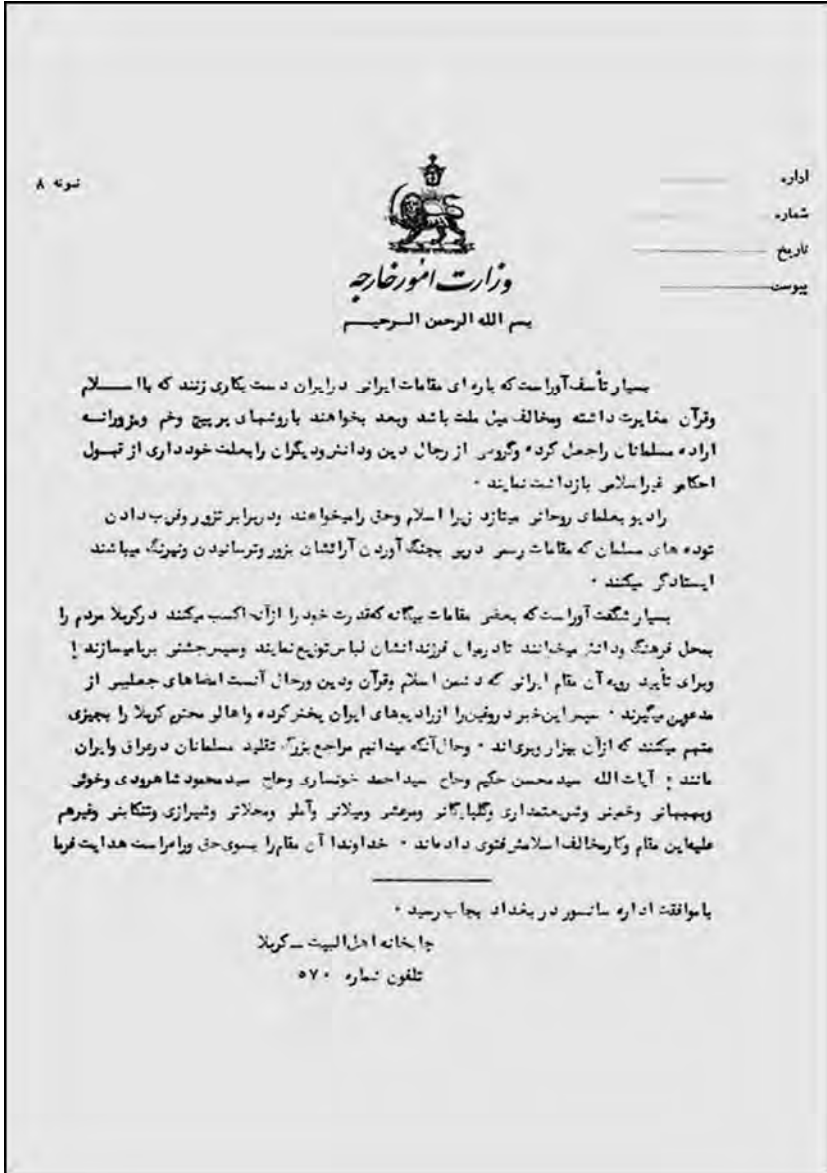 اداره
شماره
تاریخ
پیوست
نمونه ۸
وزارت امور خارجه
بسم الله الرحمن الرحیم
بسیار تأسف آور است که پاره ای مقامات ایرانی در ایران دست بکاری زنند که با اسلام
وقرآن مغایرت داشته ومخالف میل ملت باشد وبعد بخواهند با روشهای پر پیچ وخم ومزورانه
اراده مسلمانان را جعل کرده وگروهی از رجال دین ودانش ودیگران را بعلت خودداری از قبول
احکامی غیراسلامی بازداشت نمایند ۰
رادیو بعلمای روحانی میتازد زیرا اسلام وحق را میخواهند ودربرابر تزویر وفریب دادن
توده های مسلمان که مقامات رسمی در پی بچنگ آوردن آرائشان بزور وترسانیدن ونیرنگ میباشند
ایستادگی میکنند ۰
بسیار شگفت آور است که بعضی مقامات بیگانه که قدرت خود را از آنها کسب میکنند در کربلا مردم را
بمحل فرهنگ ودانش میخوانند تا در میان فرزندانشان لباس توزیع نمایند وسپس جشنی برپا میسازند
وبرای تأیید رویه آن مقام ایرانی که دشمن اسلام وقرآن ودین ورجال آنست امضاهای جعلی از
مدعوین میگیرند ۰ سپس این خبر دروغین را از رادیوهای ایران پخش کرده واهالی محترم کربلا را بچیزی
متهم میکنند که از آن بیزار وبری اند ۰ وحال آنکه میدانیم مراجع بزرگ تقلید مسلمانان در عراق وایران
مانند : آیات الله سید محسن حکیم وحاج سید احمد خونساری وحاج سید محمود شاهرودی وخوئی
وبهبهانی وخمینی وشریعتمداری وگلپایگانی ومرعشی ومیلانی وآملی ومحلاتی وشیرازی وتنکابنی وغیرهم
علیه این مقام وکار مخالف اسلامش فتوی داده اند ۰ خداوندا آن مقام را بسوی حق وراه راست هدایت فرما
با موافقت اداره سانسور در بغداد بچاپ رسید ۰
چاپخانه اهل البیت ـ کربلا
تلفون شماره ۵۷۰